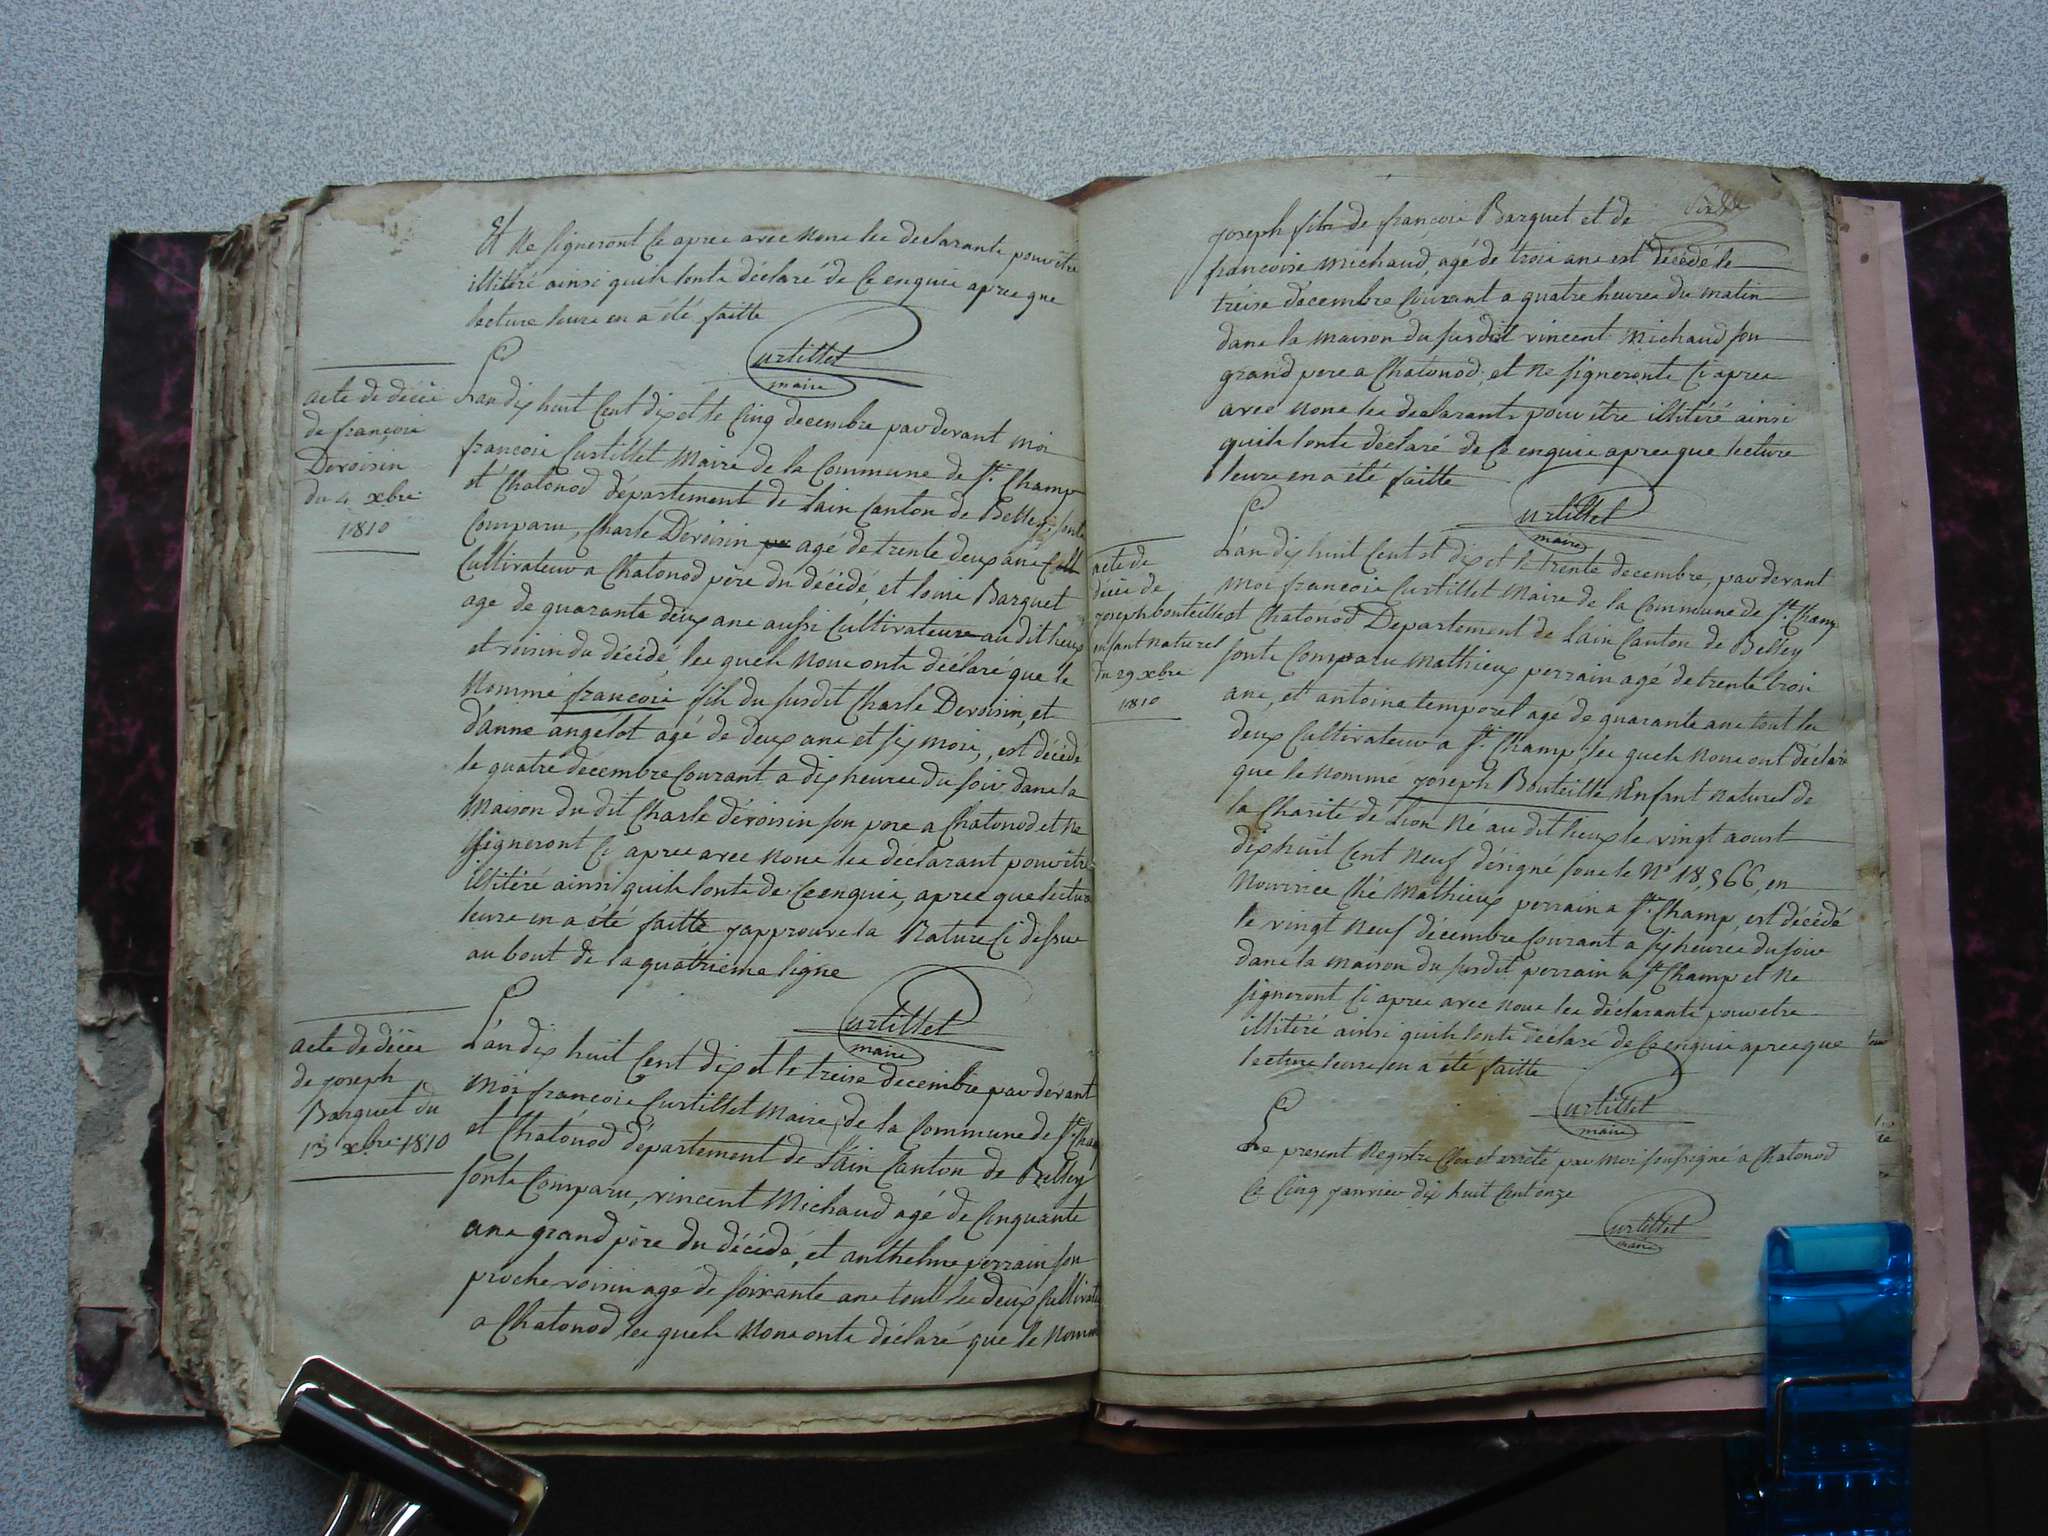 Et Ne signeront Ce apres avec Nous les declarants pour être
illitéré ainsi quils lonts déclaré de Ce enquis apres que
lecture leurs en a été faitte
Curtillet
maire
acte de décès
de françois
Devoisin
du 4 xbre
1810
L'an dix huit Cent dix et le Cinq decembre par devant Moi
françois Curtillet Maire de la Commune de St. Champ
et Chatonod département de L'ain Canton de Belley, sonts
Comparu, Charle Devoisin agé de trente deux ans
Cultivateur a Chatonod père du décédé, et louis Barquet
age de quarante deux ans aussi Cultivateurs au dit lieux
et voisin du décédé les quels Nous onts déclaré que le
Nommé françois fils du susdit Charle Devoisin, et
d'anne angelot agé de deux ans et six mois, est décédé
le quatre décembre Courant a dix heures du soir dans la
Maison du dit Charle dévoisin son pere a Chatonod et Ne
signeront Ci apres avec Nous les déclarant pour être
illitéré ainsi quils lonts de Ce enquis, apres que lecture
leurs en a été faitte japprouve la Rature Ci dessus
au bout de la quatrieme ligne
Curtillet
maire
acte de décès
de joseph
Barquet du
13 xbre 1810
L'an dix huit Cent dix et le treise decembre par devant
Moi françois Curtillet Maire, de la Commune de St. Champ
et Chatonod département de L'ain Canton de Belley
sonts Comparu, vincent Michaud agé de Cinquante
ans grand père du décédé, et anthelme perrain son
proche voisin agé de soixante ans tout les deux Cultivate
a Chatonod, les quels Nous onts déclaré que le Nommé
joseph fils de françois Barquet et de
françoise Michaud, agé de trois ans est décédé le
treise décembre Courant a quatre heures du matin
dans la maison du susdit vincent Michaud son
grand pere a Chatonod, et Ne signeronts Ci apres
avec Nous les declarants pour être illitéré ainsi
quils lonts déclaré de Ce enquis apres que lecture
leurs en a été faitte
Curtillet
maire
acte de
décès de
joseph bouteille
enfant naturel
du 29 xbre
1810
L'an dix huit Cent et dix et le trente decembre, par devant
Moi françois Curtillet Maire de la Commune de St. Champ
et Chatonod Departement de L'ain Canton de Belley
sonts Comparu Mathieux perrain agé de trente trois
ans, et antoine temporel agé de quarante ans tout les
deux Cultivateur a St. Champ, les quels Nous ont déclaré
que le Nommé joseph Bouteille Enfant Naturel de
la Charité de Lion Né au dit lieux le vingt aoust
dix huit Cent Neuf désigné sous le No 18,566, en
Nourrice Ché Mathieux perrain a St. Champ, est décédé
le vingt Neuf décembre Courant a six heures du soir
dans la maison du susdit perrain a St Champ et Ne
signeront Ci apres avec Nous les déclarants pour etre
illitéré ainsi quils lonts déclaré de Ce enquis apres que
lecture leurs en a été faitte
Curtillet
maire
Le present Registre Clos et arreté par Moi soussigné à Chatonod
Ce Cinq janvier dix huit Cent onze
Curtillet
maire